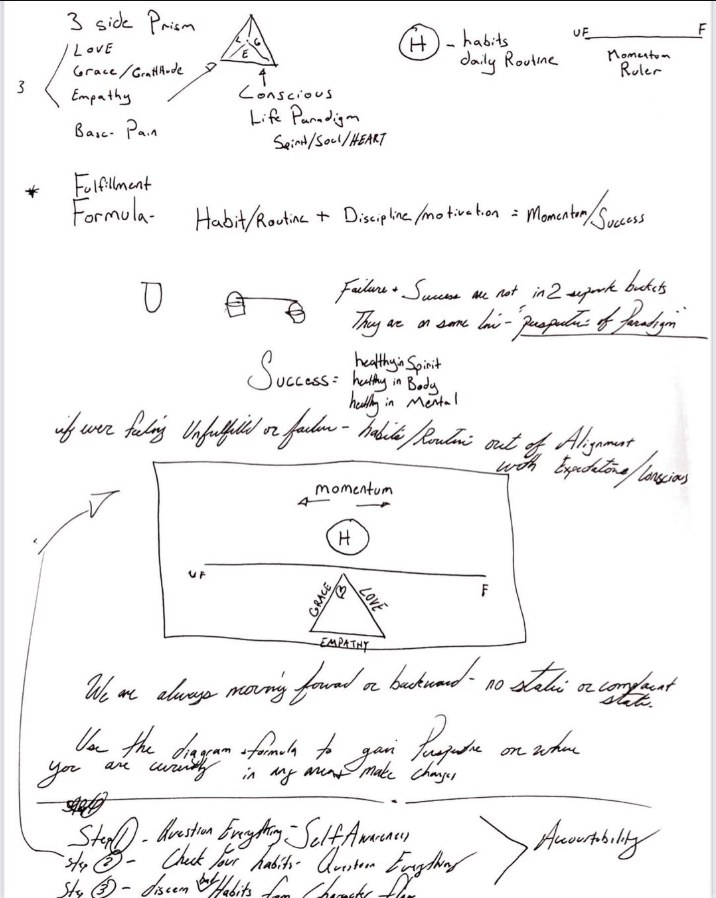 3 side Prism
LOVE
Grace/Gratitude
3
Empathy
Base- Pain
L G
E
Conscious
Life Paradigm
Spirit/Soul/HEART
H - habits
daily Routine
UF F
Momentum
Ruler
* Fulfillment
Formula- Habit/Routine + Discipline/motivation = Momentum/Success
Failure + Success are not in 2 separate buckets
They are on same line - "perspective of Paradigm"
Success= healthy in Spirit
healthy in Body
healthy in Mental
if were feeling Unfulfilled or failure - habits/Routine out of Alignment
with Expectations/Conscious
momentum
H
UF F
GRACE LOVE
EMPATHY
We are always moving forward or backward - no static or complacent
state.
Use the diagram + formula to gain Perspective on where
you are currently in any area + make changes
Step 1 - Question Everything - Self Awareness
Step 2 - Check Your habits - Question Everything
Step 3 - discern bad Habits from Character flaw
Accountability